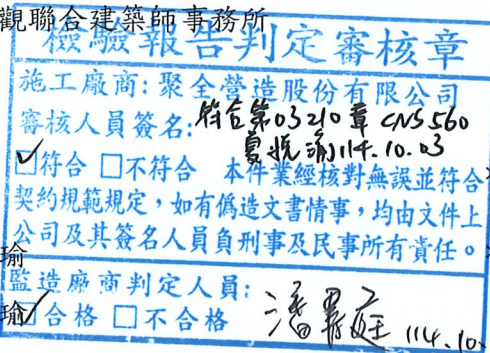 觀聯合建築師事務所
檢驗報告判定審核章
施工廠商:聚全營造股份有限公司
審核人員簽名:符合第03210章 CNS 560
夏 114.10.03
☑符合 □不符合 本件業經核對無誤並符合
契約規範規定,如有偽造文書情事,均由文件上
公司及其簽名人員負刑事及民事所有責任。
瑜
監造廠商判定人員:
瑜
☑合格 □不合格 潘 庭 114.10.